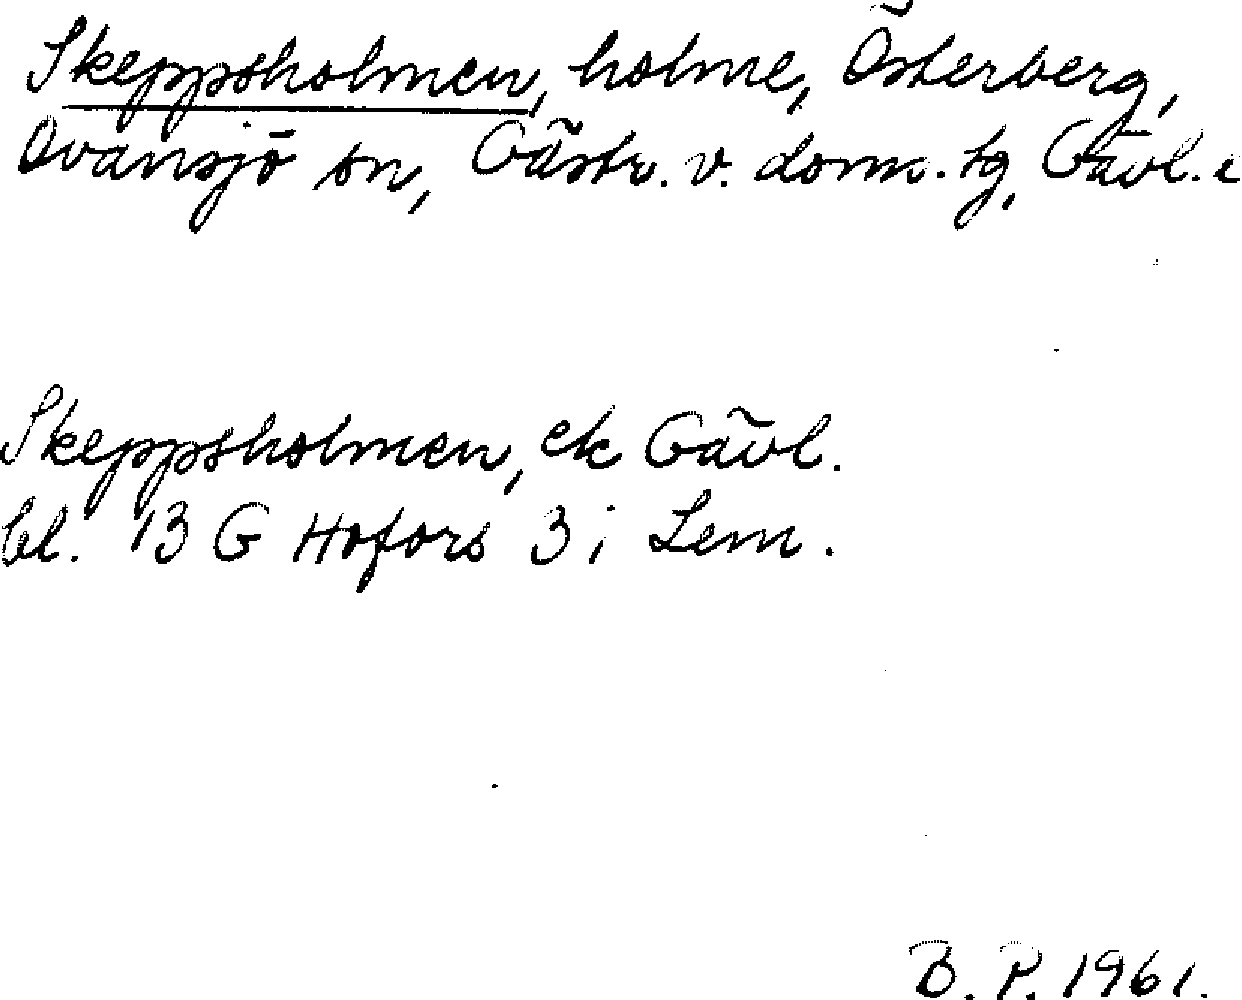 Skeppsholmen, holme, Österberg,
Ovansjö sn, Gästr. v. doms. tg, Gävl.
Skeppsholmen, ek Gävl.
bl. 13 G Hofors 3 i Lem.
B. P. 1961.